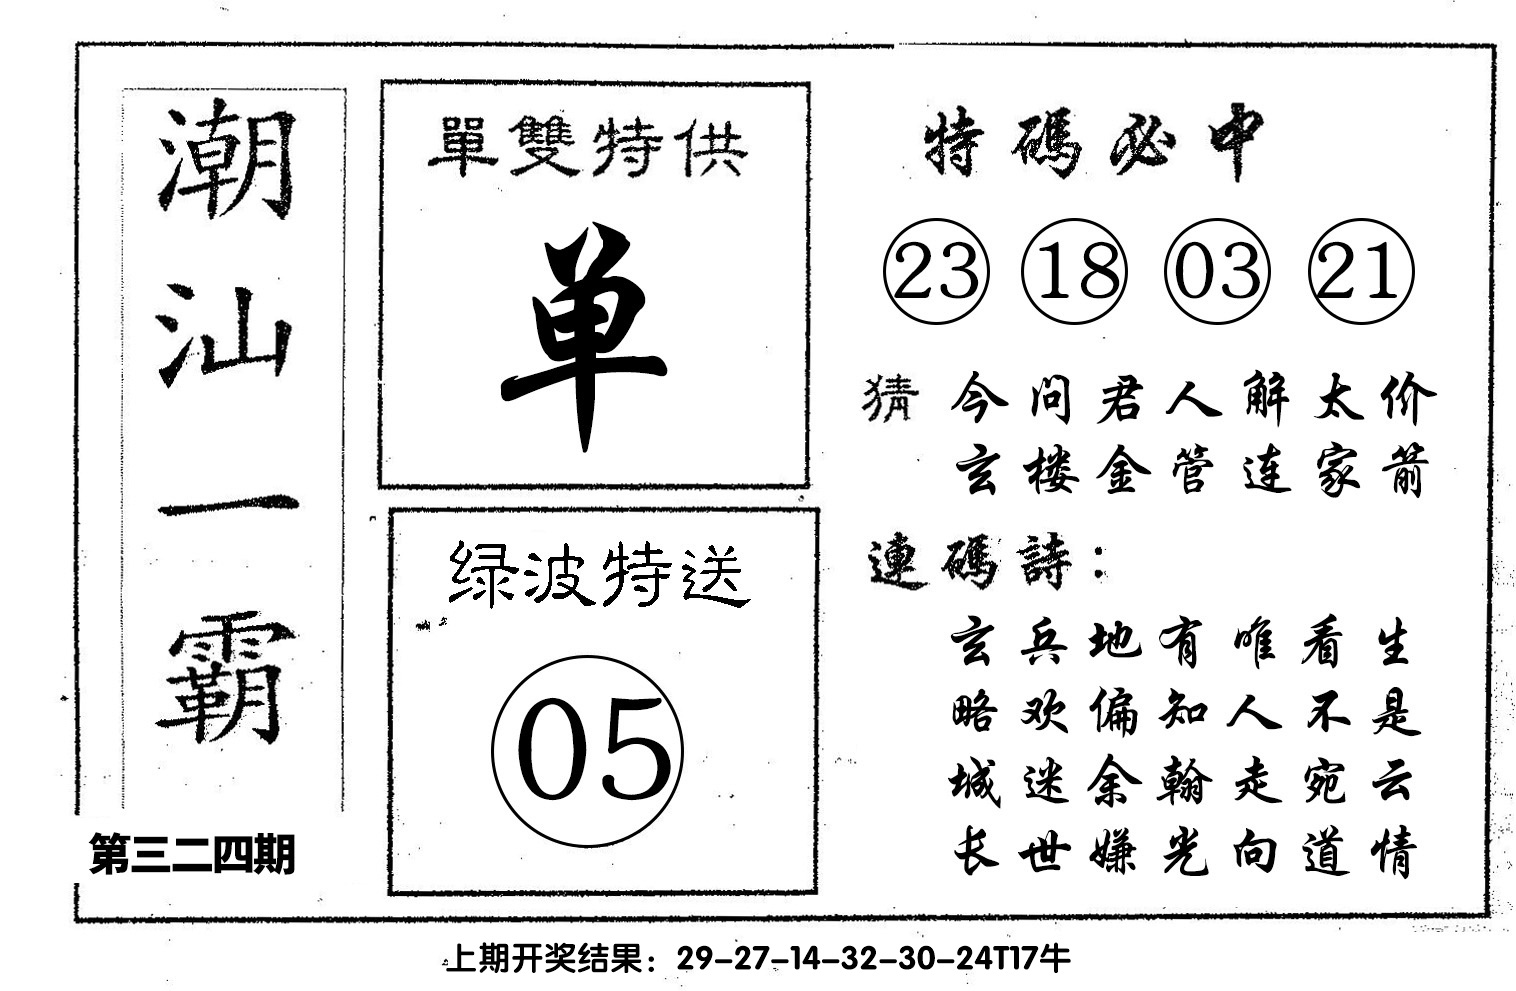 潮汕一霸
第三二四期
單雙特供
单
绿波特送
05
特碼必中
23 18 03 21
猜 今问君人解太价
玄楼金管连家箭
連碼詩：
玄兵地有唯看生
略欢偏知人不是
城迷余翰走宛云
长世嫌光向道情
上期开奖结果：29-27-14-32-30-24T17牛